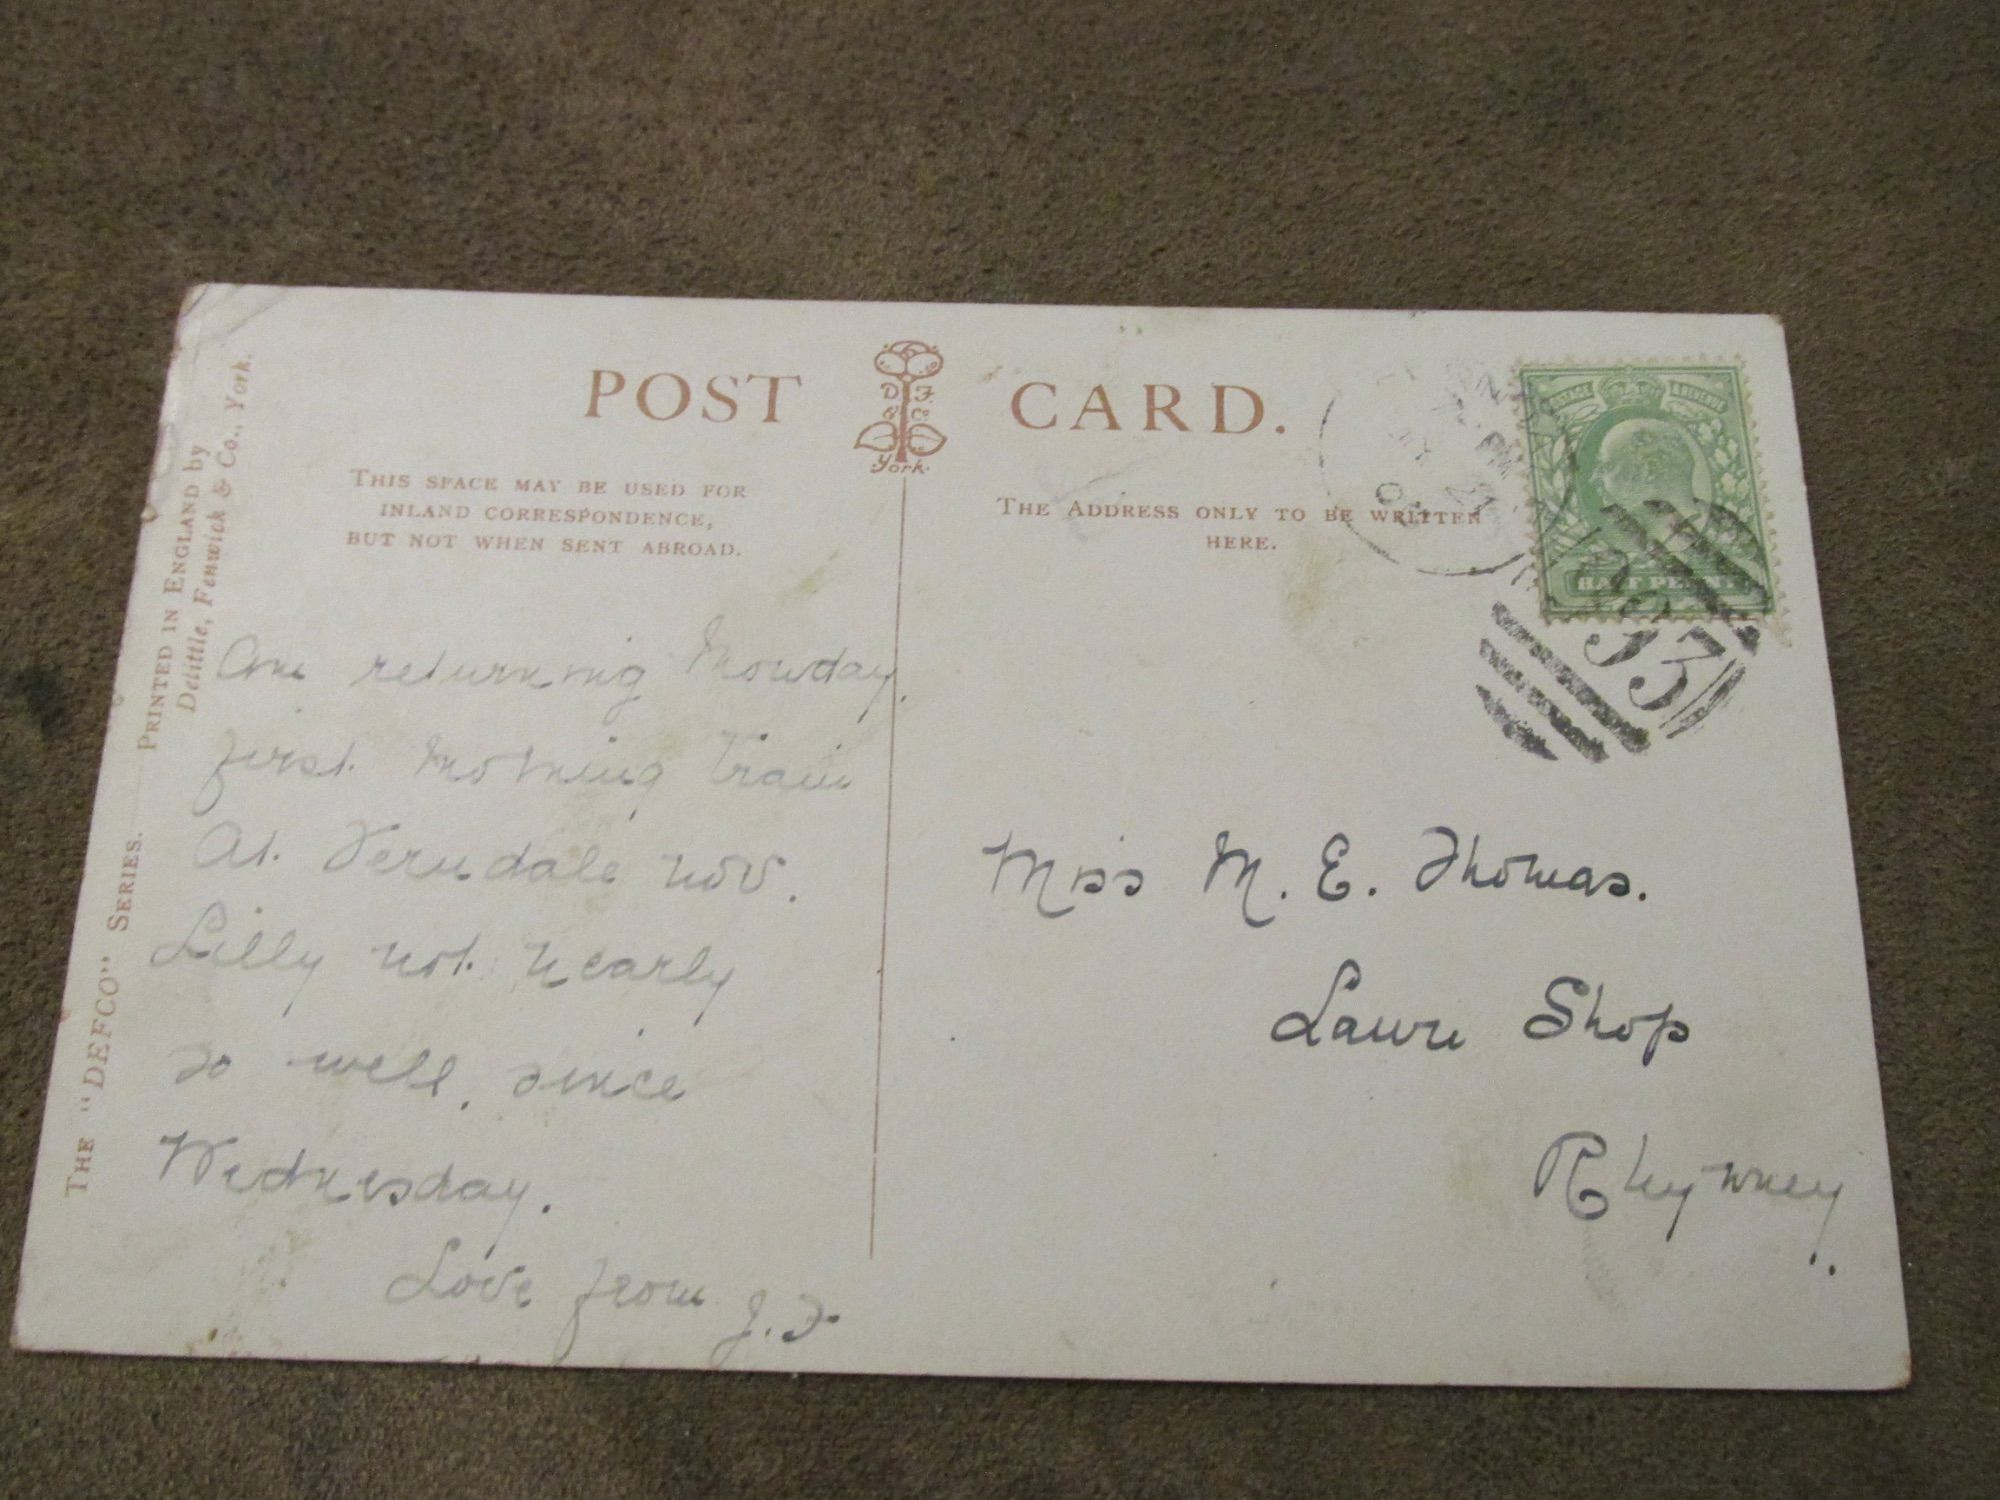 POST CARD.
D F & Co York.
THIS SPACE MAY BE USED FOR
INLAND CORRESPONDENCE,
BUT NOT WHEN SENT ABROAD.
THE ADDRESS ONLY TO BE WRITTEN
HERE.
POSTAGE REVENUE
HALF PENNY
93
THE "DEFCO" SERIES. PRINTED IN ENGLAND by
Delittle, Fenwick & Co., York.
Am returning Monday,
first morning train
At. Ferndale now.
Lilly not nearly
so well, since
Wednesday.
Love from J.T.
Miss M. E. Thomas.
Lawn Shop
Rhymney